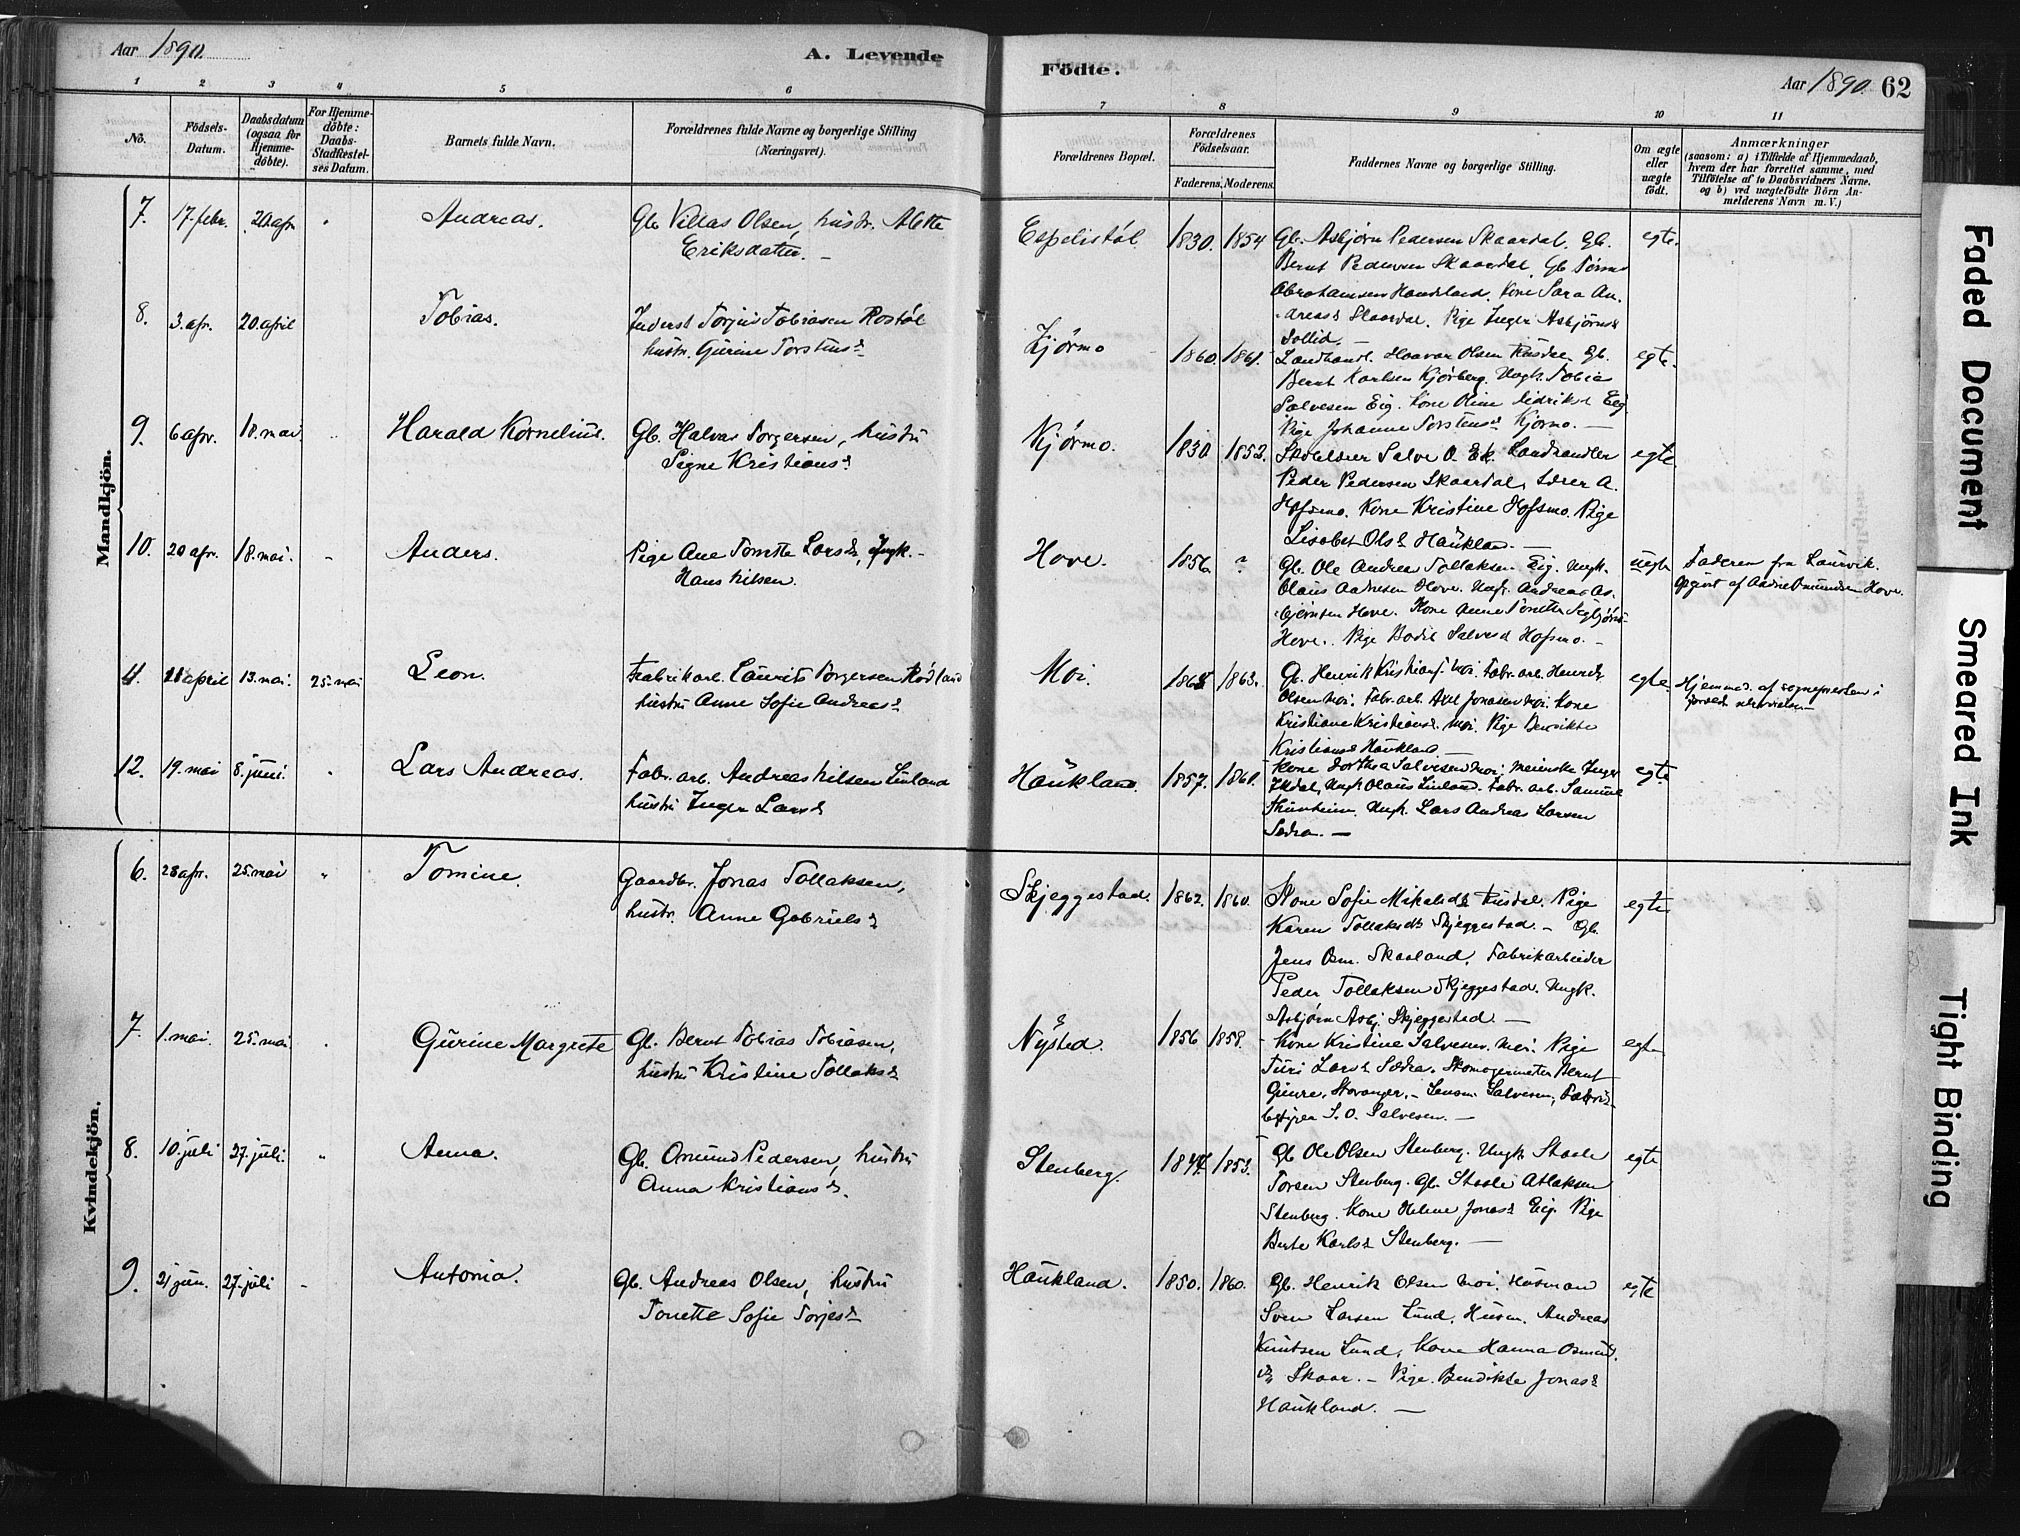 Aar 1890.
A. Levende
Födte.
Aar 1890. 62
1 2 3 4 5 6 7 8 9 10 11
No.
Födsels-
Datum.
Daabsdatum
(ogsaa for
Hjemme-
döbte).
For Hjemme-
döbte:
Daabs-
Stadfæstel-
ses Datum.
Barnets fulde Navn.
Forældrenes fulde Navne og borgerlige Stilling
(Næringsvei).
Forældrenes Bopæl.
Forældrenes
Födselsaar.
Faderens. Moderens.
Faddernes Navne og borgerlige Stilling.
Om ægte
eller
uægte
födt.
Anmærkninger
(saasom: a) i Tilfælde af Hjemmedaab,
hvem der har forrettet samme, med
Tilföielse af to Daabsvidners Navne,
og b) ved uægtefödte Börn An-
melderens Navn m. V.)
Mandkjön.
7. 17. febr. 20 apr. Andreas.
Olsen, hustr. Alette
Eriksdatter. —
Espelistøl 1830. 1854
Gb. Asbjørn Pedersen Skaardal. Gb.
Bernt Pedersen Skaardal. Gb. Tørres
Abrahamsen Haukland. Kone Sara An-
dreasd. Skaardal. Pige Inger Asbjørnsd.
Sollid. —
egte.
8. 3. apr. 20. april Tobias.
Inderst Torjus Tobiasen Rostøl
hustr. Gurine Torstensd.
Kjørmo 1860. 1861.
Landhandl. Haavar Olsen Gb.
Bernt Karlsen Kjørberg. Ungk. Tobias
Salvesen Eig. Kone Oline Eig
Pige Johanne Torstensd. Kjørmo. —
egte.
9. 6 apr. 18. mai Harald Kornelius.
Gb. Halvor Torgersen, hustru
Signe Kristiansd.
Kjørmo. 1830. 1853.
Salve O. Eik. Landhandler
Peder Pedersen Skaardal, Lærer A.
Hofsmo. Kone Kristine Hofsmo. Pige
Lisabet Olsd. Haukland. —
egte
10. 20 apr. 18. mai. Anders.
Pige Ane Tonette Larsd., Ungk.
Hans Nilsen.
Hove. 1856 ?
Gb. Ole Andreas Tollaksen Eig. Ungk.
Olaus Aadnesen Hove. Ungk. Andreas As-
bjørnsen Hove. Kone Anne Tonette
Hove. Pige Bodil Salvesd. Hofsmo. —
uegte
Faderen fra Laurvik.
Opgivet af Aadne Omundsen Hove.
11. april 13. mai. 25. mai Leon.
Fabrikarb. Laurits Torgersen Rødland
hustru Anne Sofie Andreasd.
Moi. 1863.
G. Henrik Kristians. Moi. Fabr. arb. Henrik
Olsen Moi. Fabr. arb. Axel Jonasen Moi. Kone
Kristiane Kristiansd. Moi. Pige Benedikte
Kristiansd. Haukland —
egte.
Hjemmed. af sognepresten i
12. 19. mai 8. juni. Lars Andreas.
Fabr. arb. Andreas Nilsen Linland
hustru Inger Larsd.
Haukland. 1857. 1861.
Kone Dorthea Salvesen Moi, Inger
Ungk. Olaus Linland. Fabr. arb. Samuel
Ungk. Lars Andreas Larsen
Sædra. —
egte
Kvindekjön.
6. 28 apr. 25. mai Tomine.
Gaardbr. Jonas Tollaksen,
hustr. Anne Gabrielsd.
Skjeggestad. 1862. 1860.
Kone Sofie Mikalsd. Pige
Karen Tollaksd. Skjeggestad. — Gb.
Jens Osm. Skaaland. Fabrikarbeider
Peder Tollaksen Skjeggestad. Ungk.
Asbjørn Asbj. Skjeggestad. —
egte
7. 1. mai. 25. mai Gurine Margrete
Gb. Bernt Tobias Tobiasen,
hustru Kristine Tollaksd.
Nysted. 1856 1858.
Kone Kristine Salvesen. Moi. Pige
Turi Larsd. Sædra. Skomagermester Bernt
Stavanger. — Lensm. Salvesen, Fabrik-
S. O. Salvesen. —
egte
8. 10. juli 27. juli. Anna.
Gb. Omund Pedersen, hustru
Anna Kristiansd.
Stenberg. 1853.
Gb Ole Olsen Stenberg. Ungk. Staale
Torsen Stenberg. Gb. Staale Atlaksen
Stenberg. Kone Helene Jonasd. Eig. Pige
Berte Karlsd. Stenberg. —
egte
9. 21 jun. 27. juli Antonia.
Gb. Andreas Olsen, hustru
Tonette Sofie Torjesd.
Haukland. 1850. 1860.
Gb. Henrik Olsen Moi. Husmand
Sven Larsen Lund, Husm. Andreas
Knutsen Lund, Kone Hanna Osmund-
d. Skaar. — Pige Bendikte Jonasd.
Haukland. —
egte
Faded Document
Smeared Ink
Tight Binding